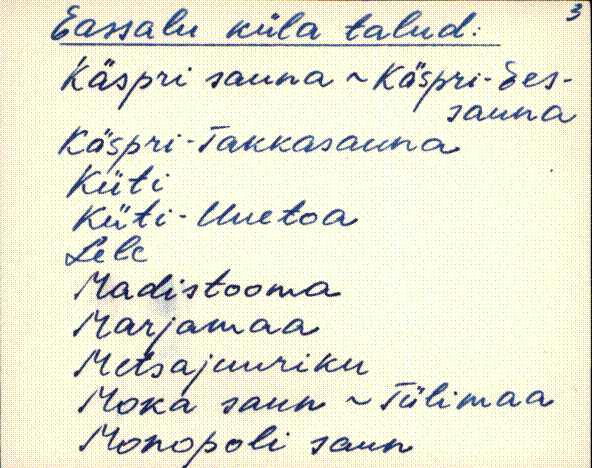 3
Eassalu küla talud:
Käspri sauna ~ Käspri-Ees-
sauna
Käspri-Takkasauna
Küti
Küti-Uuetoa
Lele
Madistooma
Marjamaa
Metsajuuriku
Moka saun ~ Tülimaa
Monopoli saun